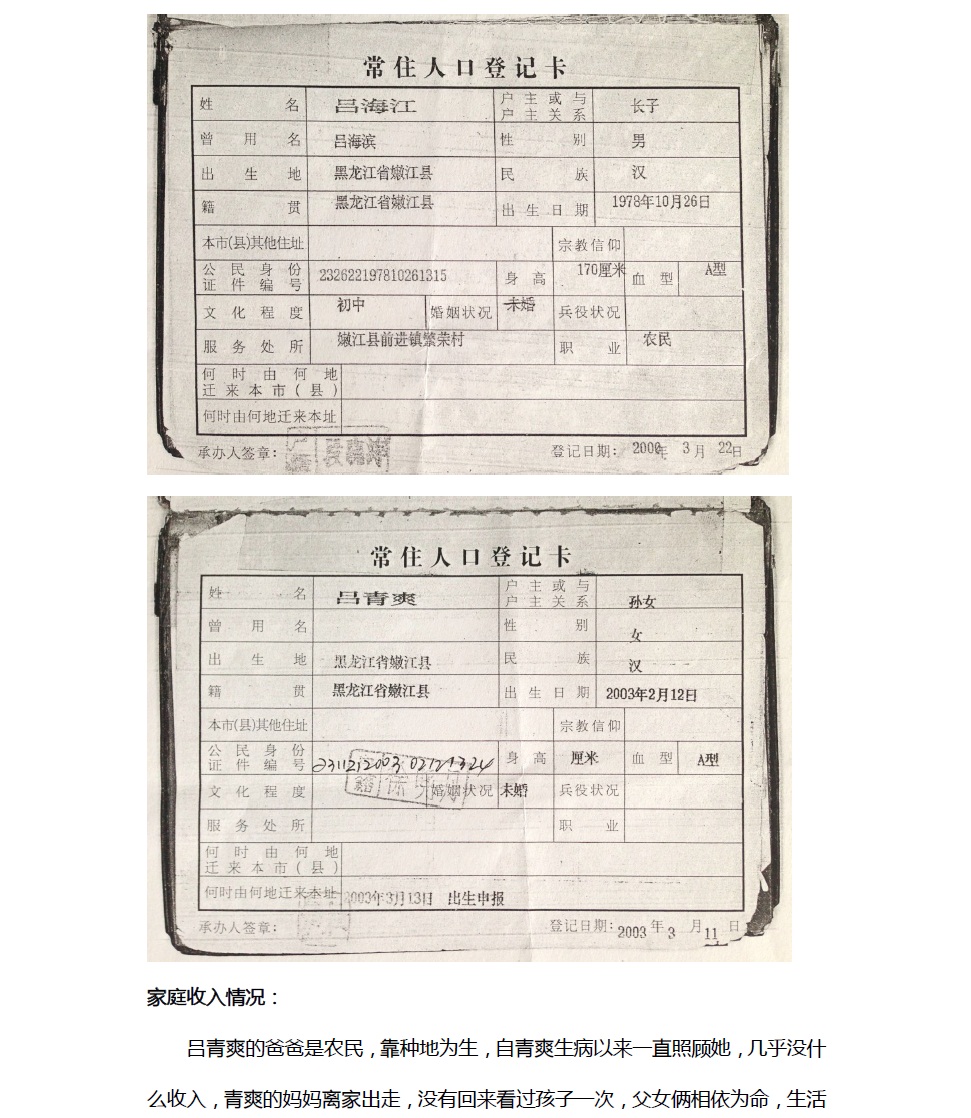 常住人口登记卡
姓名 吕海江 户主或与户主关系 长子
曾用名 吕海滨 性别 男
出生地 黑龙江省嫩江县 民族 汉
籍贯 黑龙江省嫩江县 出生日期 1978年10月26日
本市(县)其他住址 宗教信仰
公民身份证件编号 232622197810261315 身高 170厘米 血型 A型
文化程度 初中 婚姻状况 未婚 兵役状况
服务处所 嫩江县前进镇繁荣村 职业 农民
何时由何地迁来本市(县)
何时由何地迁来本址
承办人签章: 登记日期: 2000年3月22日
常住人口登记卡
姓名 吕青爽 户主或与户主关系 孙女
曾用名 性别 女
出生地 黑龙江省嫩江县 民族 汉
籍贯 黑龙江省嫩江县 出生日期 2003年2月12日
本市(县)其他住址 宗教信仰
公民身份证件编号 身高 厘米 血型 A型
文化程度 婚姻状况 未婚 兵役状况
服务处所 职业
何时由何地迁来本市(县)
何时由何地迁来本址 2003年3月13日 出生申报
承办人签章: 登记日期: 2003年3月11日
家庭收入情况：
吕青爽的爸爸是农民，靠种地为生，自青爽生病以来一直照顾她，几乎没什
么收入，青爽的妈妈离家出走，没有回来看过孩子一次，父女俩相依为命，生活